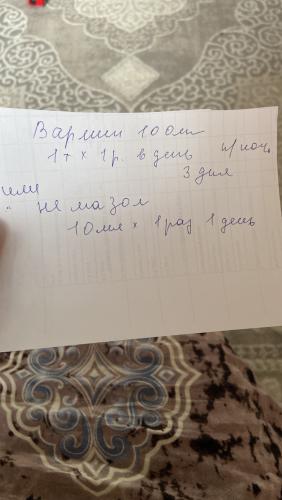 Вармин 100мг
1т × 1р. в день н/ночь
3 дня
или
немазол
10мл × 1раз 1 день